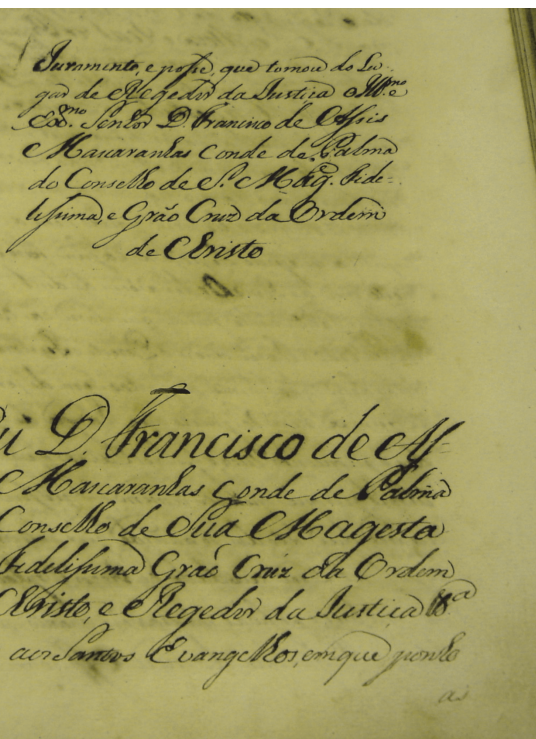 Juramento, e posse, que tomou do Lu-
gar de Regedor da Justiça o Ill.mo e
Ex.mo Senhor D. Francisco de Assis
Mascarenhas Conde de Palma
do Conselho de S. Mag.e Fide-
lissima, e Grão Cruz da Ordem
de Christo
D. Francisco de As-
Mascarenhas Conde de Palma
Conselho de Sua Magesta
Fidelissima Grão Cruz da Ordem
Christo, e Regedor da Justiça
aos Santos Evangelhos, em que ponho
as